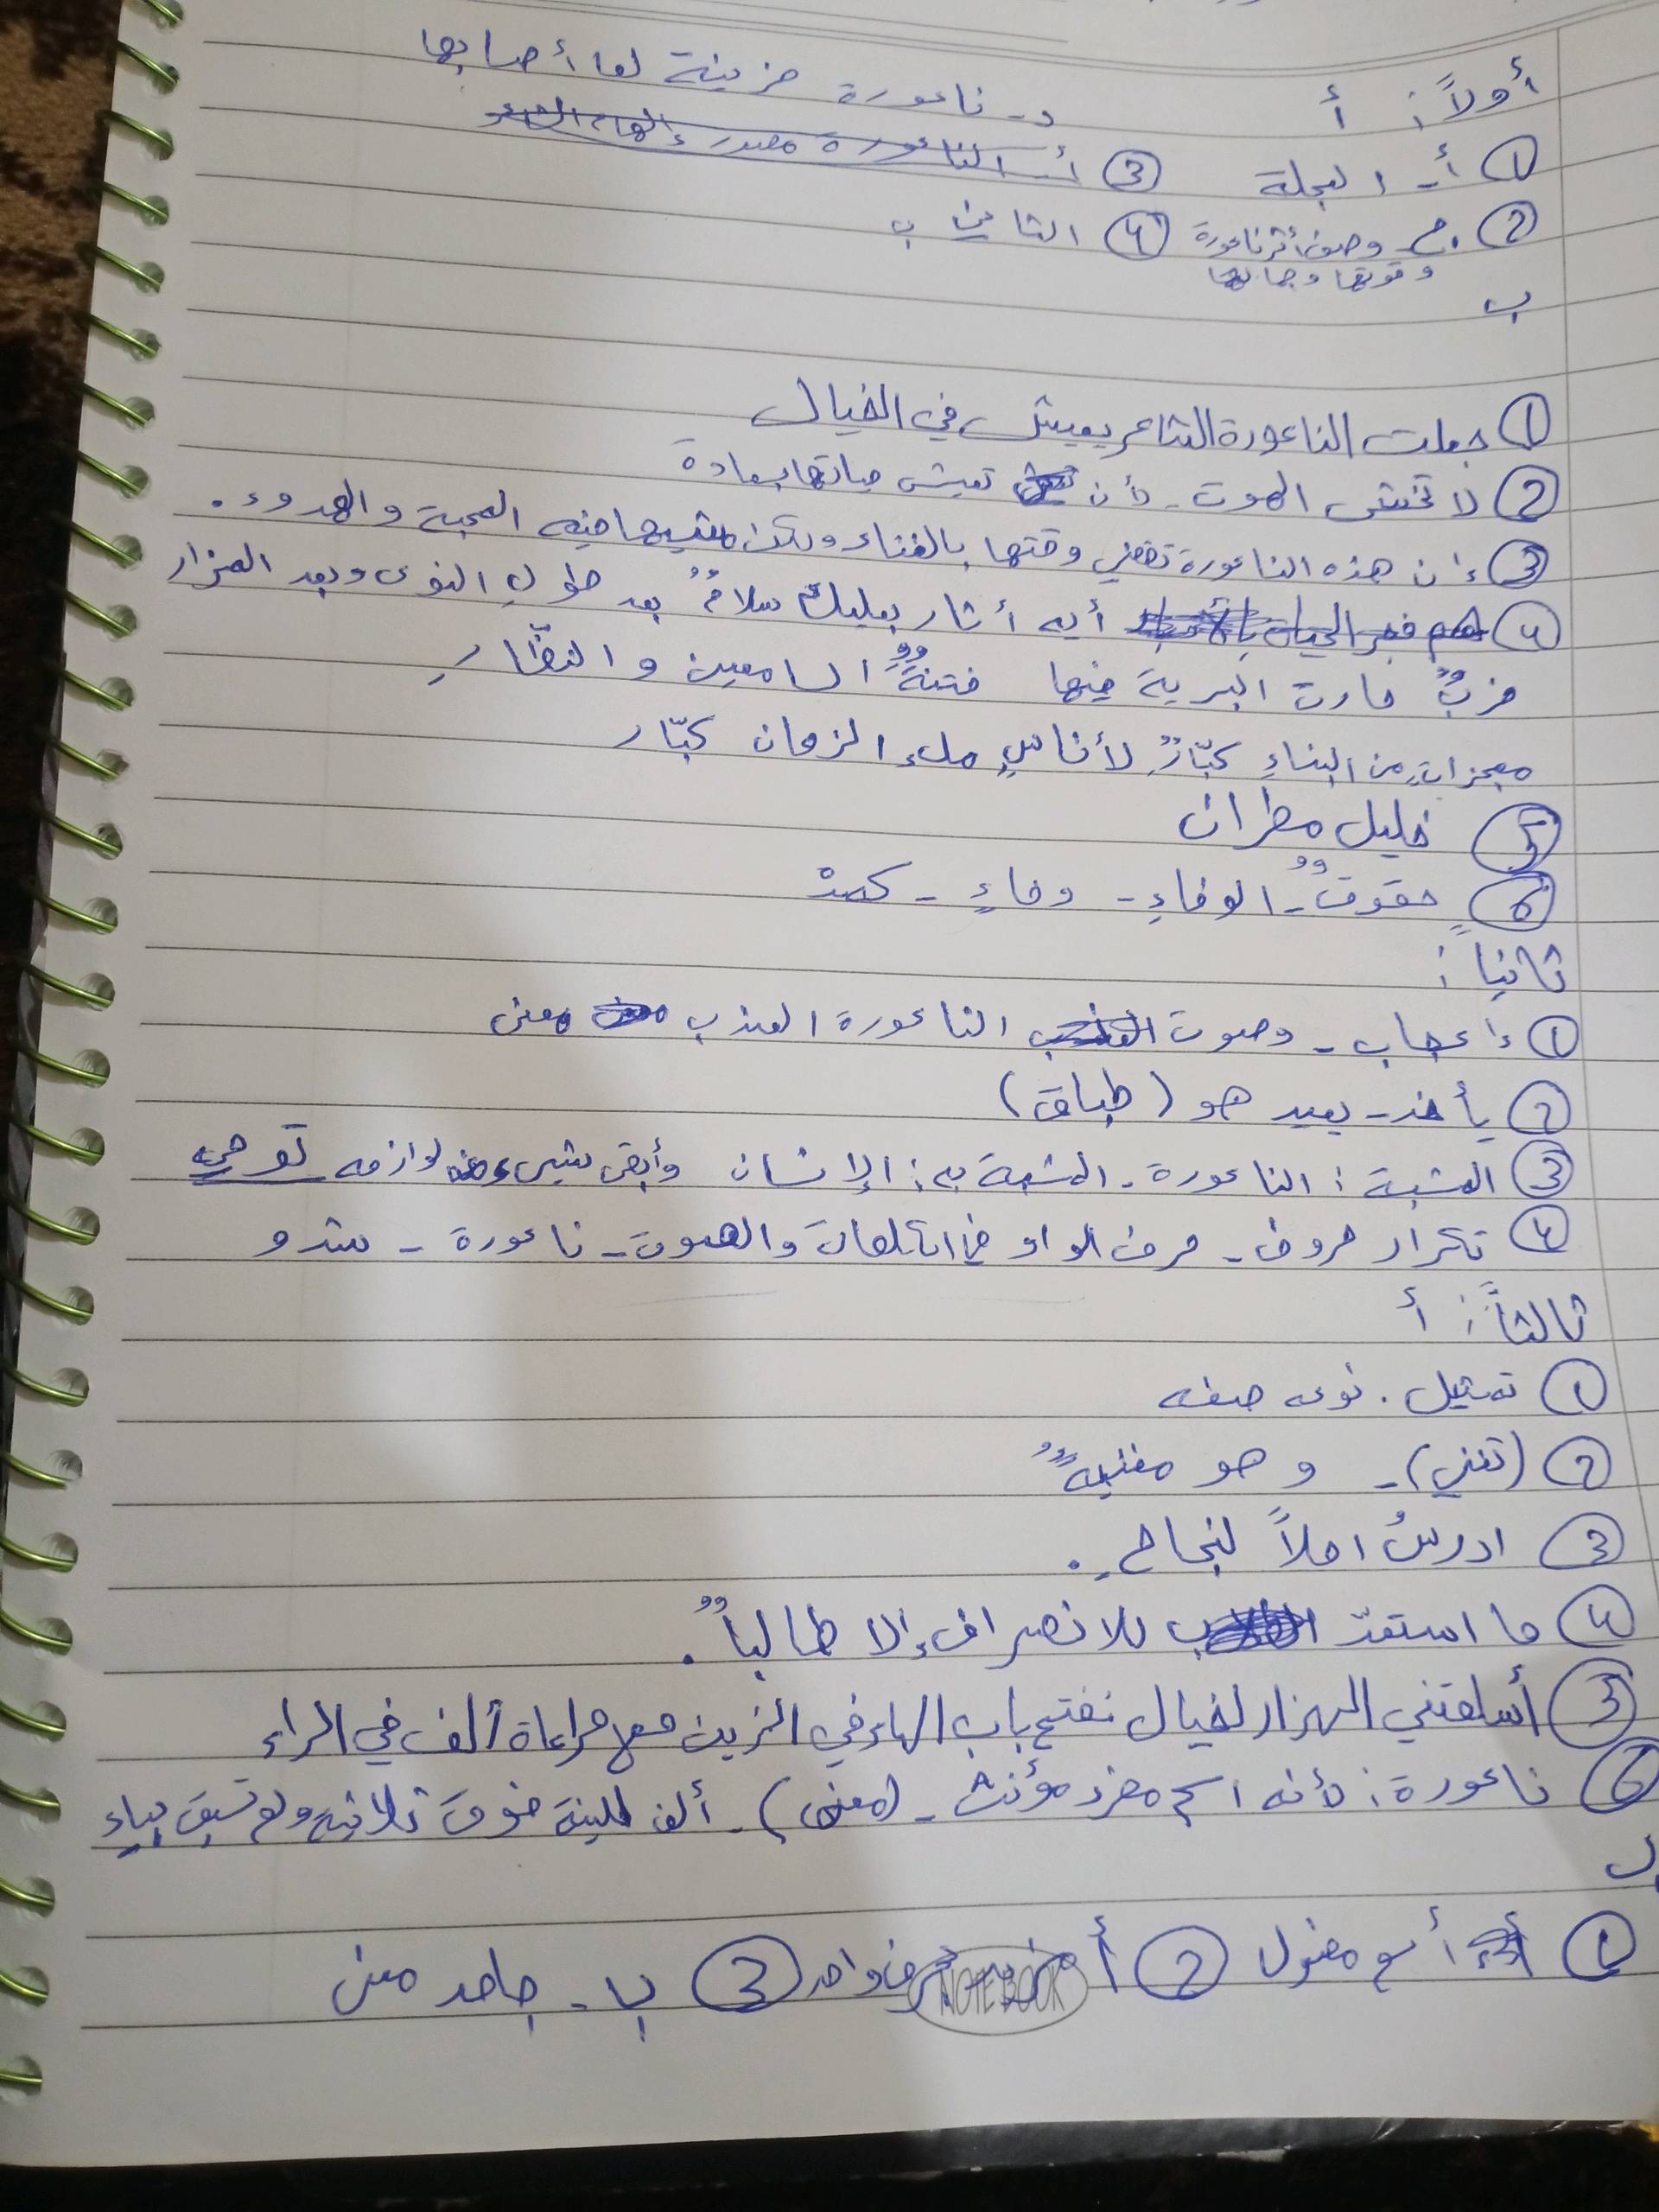 أولاً: أ
① أ- العجلة ③ أ- الناعورة مصدر إلهام الشاعر د- ناعورة حزينة لما أصابها
② ج- وصف أثر ناعورة وقوتها وجمالها ④ الثاني ب
ب
① جعلت الناعورة الشاعر يعيش في الخيال
② لا تخشى الموت - كأن تعيش حياتها بسعادة
③ إن هذه الناعورة تقضي وقتها بالغناء ولكن فيه المحبة والهدوء.
④ أيه أثار بعلبك سلامٌ بعد طولِ النوى وبعد المزار
خربٌ حارت البرية فيها فتنةُ السامعين والنظّارِ
معجزات من البناءِ كبّارٌ لأناسٍ ملء الزمان كبّار
⑤ خليل مطران
⑥ حقوقٌ - الوفاءِ - وفاءٍ - كصدْ
ثانياً:
① إعجاب - وصوت الناعورة العذب معنى
② يأخذ - يعيد هو (طباق)
③ المشبة: الناعورة - المشبة به: الإنسان وأبقى شيء من لوازمه توحي
④ تكرار حروف - حرف الواو في والصوت - ناعورة - شدو
ثالثاً: أ
① تمثيل. نوعه صفه
② (تغني) - وهو مغنيةٌ
③ ادرسُ املاً لنجاحٍ.
④ ما استعدّ للانصراف إلا طالباً.
⑤ أسلمتني الهزار لخيال نفتح باب الهاء في الزين مع مراعاة ألف في الراء
⑥ ناعورة: لأنه اسم مفرد مؤنث - (معنى) - ألف لينة فوق ثلاثية ولم تسبق بياء
ب
① أ اسم مفعول ② أ حرف واحد ③ ب - جامد معنى
NOTEBOOK